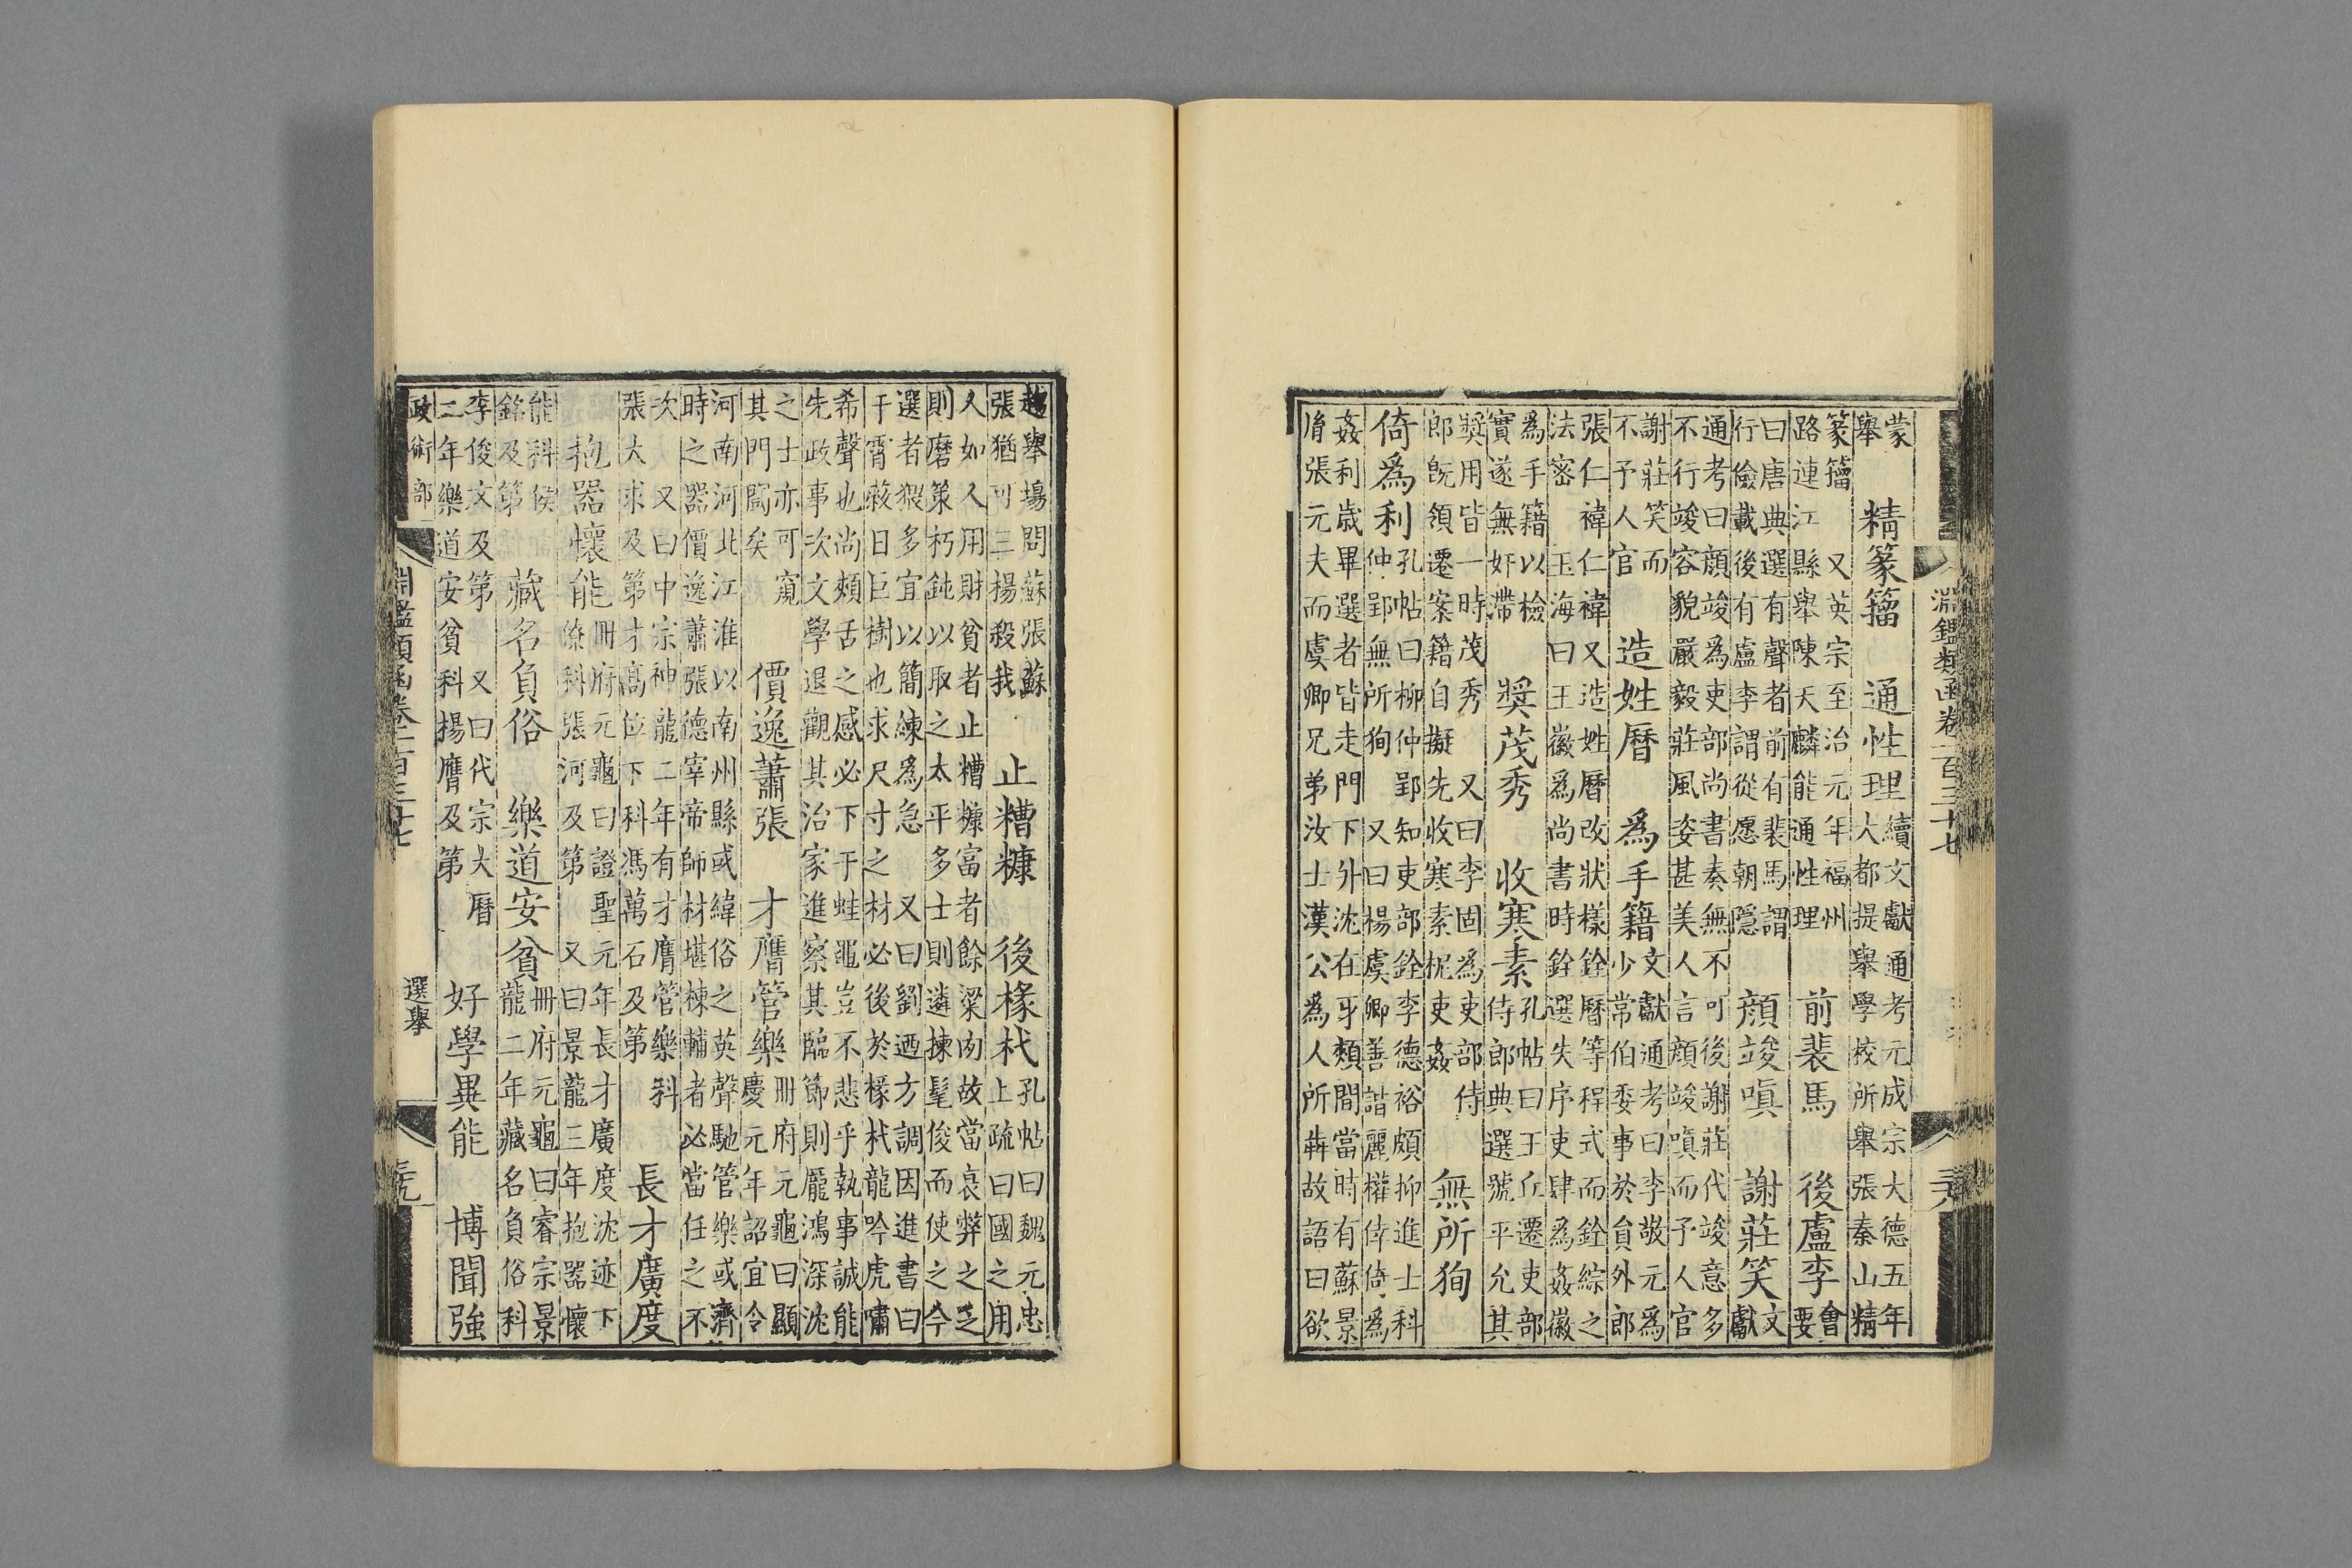 淵鑑類函卷一百三十七
蒙
舉
精篆籀　通性理
續文獻通考元成宗大德五年
大都提舉學校所舉張秦山精
篆籀　又英宗至治元年福州
路連江縣舉陳天麟能通性理
前裴馬　後盧李
會
要
曰唐典選有聲者前有裴馬謂
行儉載後有盧李謂從愿朝隱
顏竣嗔　謝莊笑
文
獻
通考曰顏竣為吏部尚書奏無不可後謝莊代竣意多
不行竣容貌嚴毅莊風姿甚美人言顏竣嗔而予人官
謝莊笑而
不予人官
造姓曆　為手籍
文獻通考曰李敬元為
少常伯委事於員外郎
張仁禕仁禕又造姓曆改狀樣銓曆等程式而銓綜之
法密　玉海曰王徽為尚書時銓選失序吏肆為姦徽
為手籍以檢
實遂無奸滯
獎茂秀　收寒素
孔帖曰王丘遷吏部
侍郎典選號平允其
獎用皆一時茂秀　又曰李固為吏部侍
郎既領遷案籍自擬先收寒素柅吏姦
無所狥
倚為利
孔帖曰柳仲郢知吏部銓李德裕頗抑進士科
仲郢無所狥　又曰楊虞卿善諧麗權倖倚為
姦利歲畢選者皆走門下外沈在牙頰間當時有蘇景
胤張元夫而虞卿兄弟汝士漢公為人所犇故語曰欲
趨舉場問蘇張蘇
張猶可三楊殺我
止糟糠　後椽杙
孔帖曰魏元忠
上疏曰國之用
人如人用財貧者止糟糠富者餘梁肉故當衰弊之乏
則磨策朽鈍以取之太平多士則遴揀髦俊而使之今
選者猥多宜以簡練為急　又曰劉迺方調因進書曰
干霄蔽日巨樹也求尺寸之材必後於椽杙龍吟虎嘯
希聲也尚頰舌之感必下干蛙黽豈不悲乎執事誠能
先政事次文學退觀其治家進察其臨節則龐鴻深沈
之士亦可窺
其門閾矣
價逸蕭張　才膺管樂
冊府元龜曰顯
慶元年詔宜令
河南河北江淮以南州縣或緯俗之英聲馳管樂或濟
時之器價逸蕭張德宰帝師材堪棟輔者必當任之不
次　又曰中宗神龍二年有才膺管樂科
張大求及第才高位下科馮萬石及第
長才廣度
抱器懷能
冊府元龜曰證聖元年長才廣度沈迹下
僚科張河及第　又曰景龍三年抱器懷
能科侯
銘及第
藏名負俗　樂道安貧
冊府元龜曰睿宗景
龍二年藏名負俗科
李俊文及第　又曰代宗大曆
二年樂道安貧科楊膺及第
好學異能　博聞強
政術部　淵鑑類函卷一百三十七　選舉